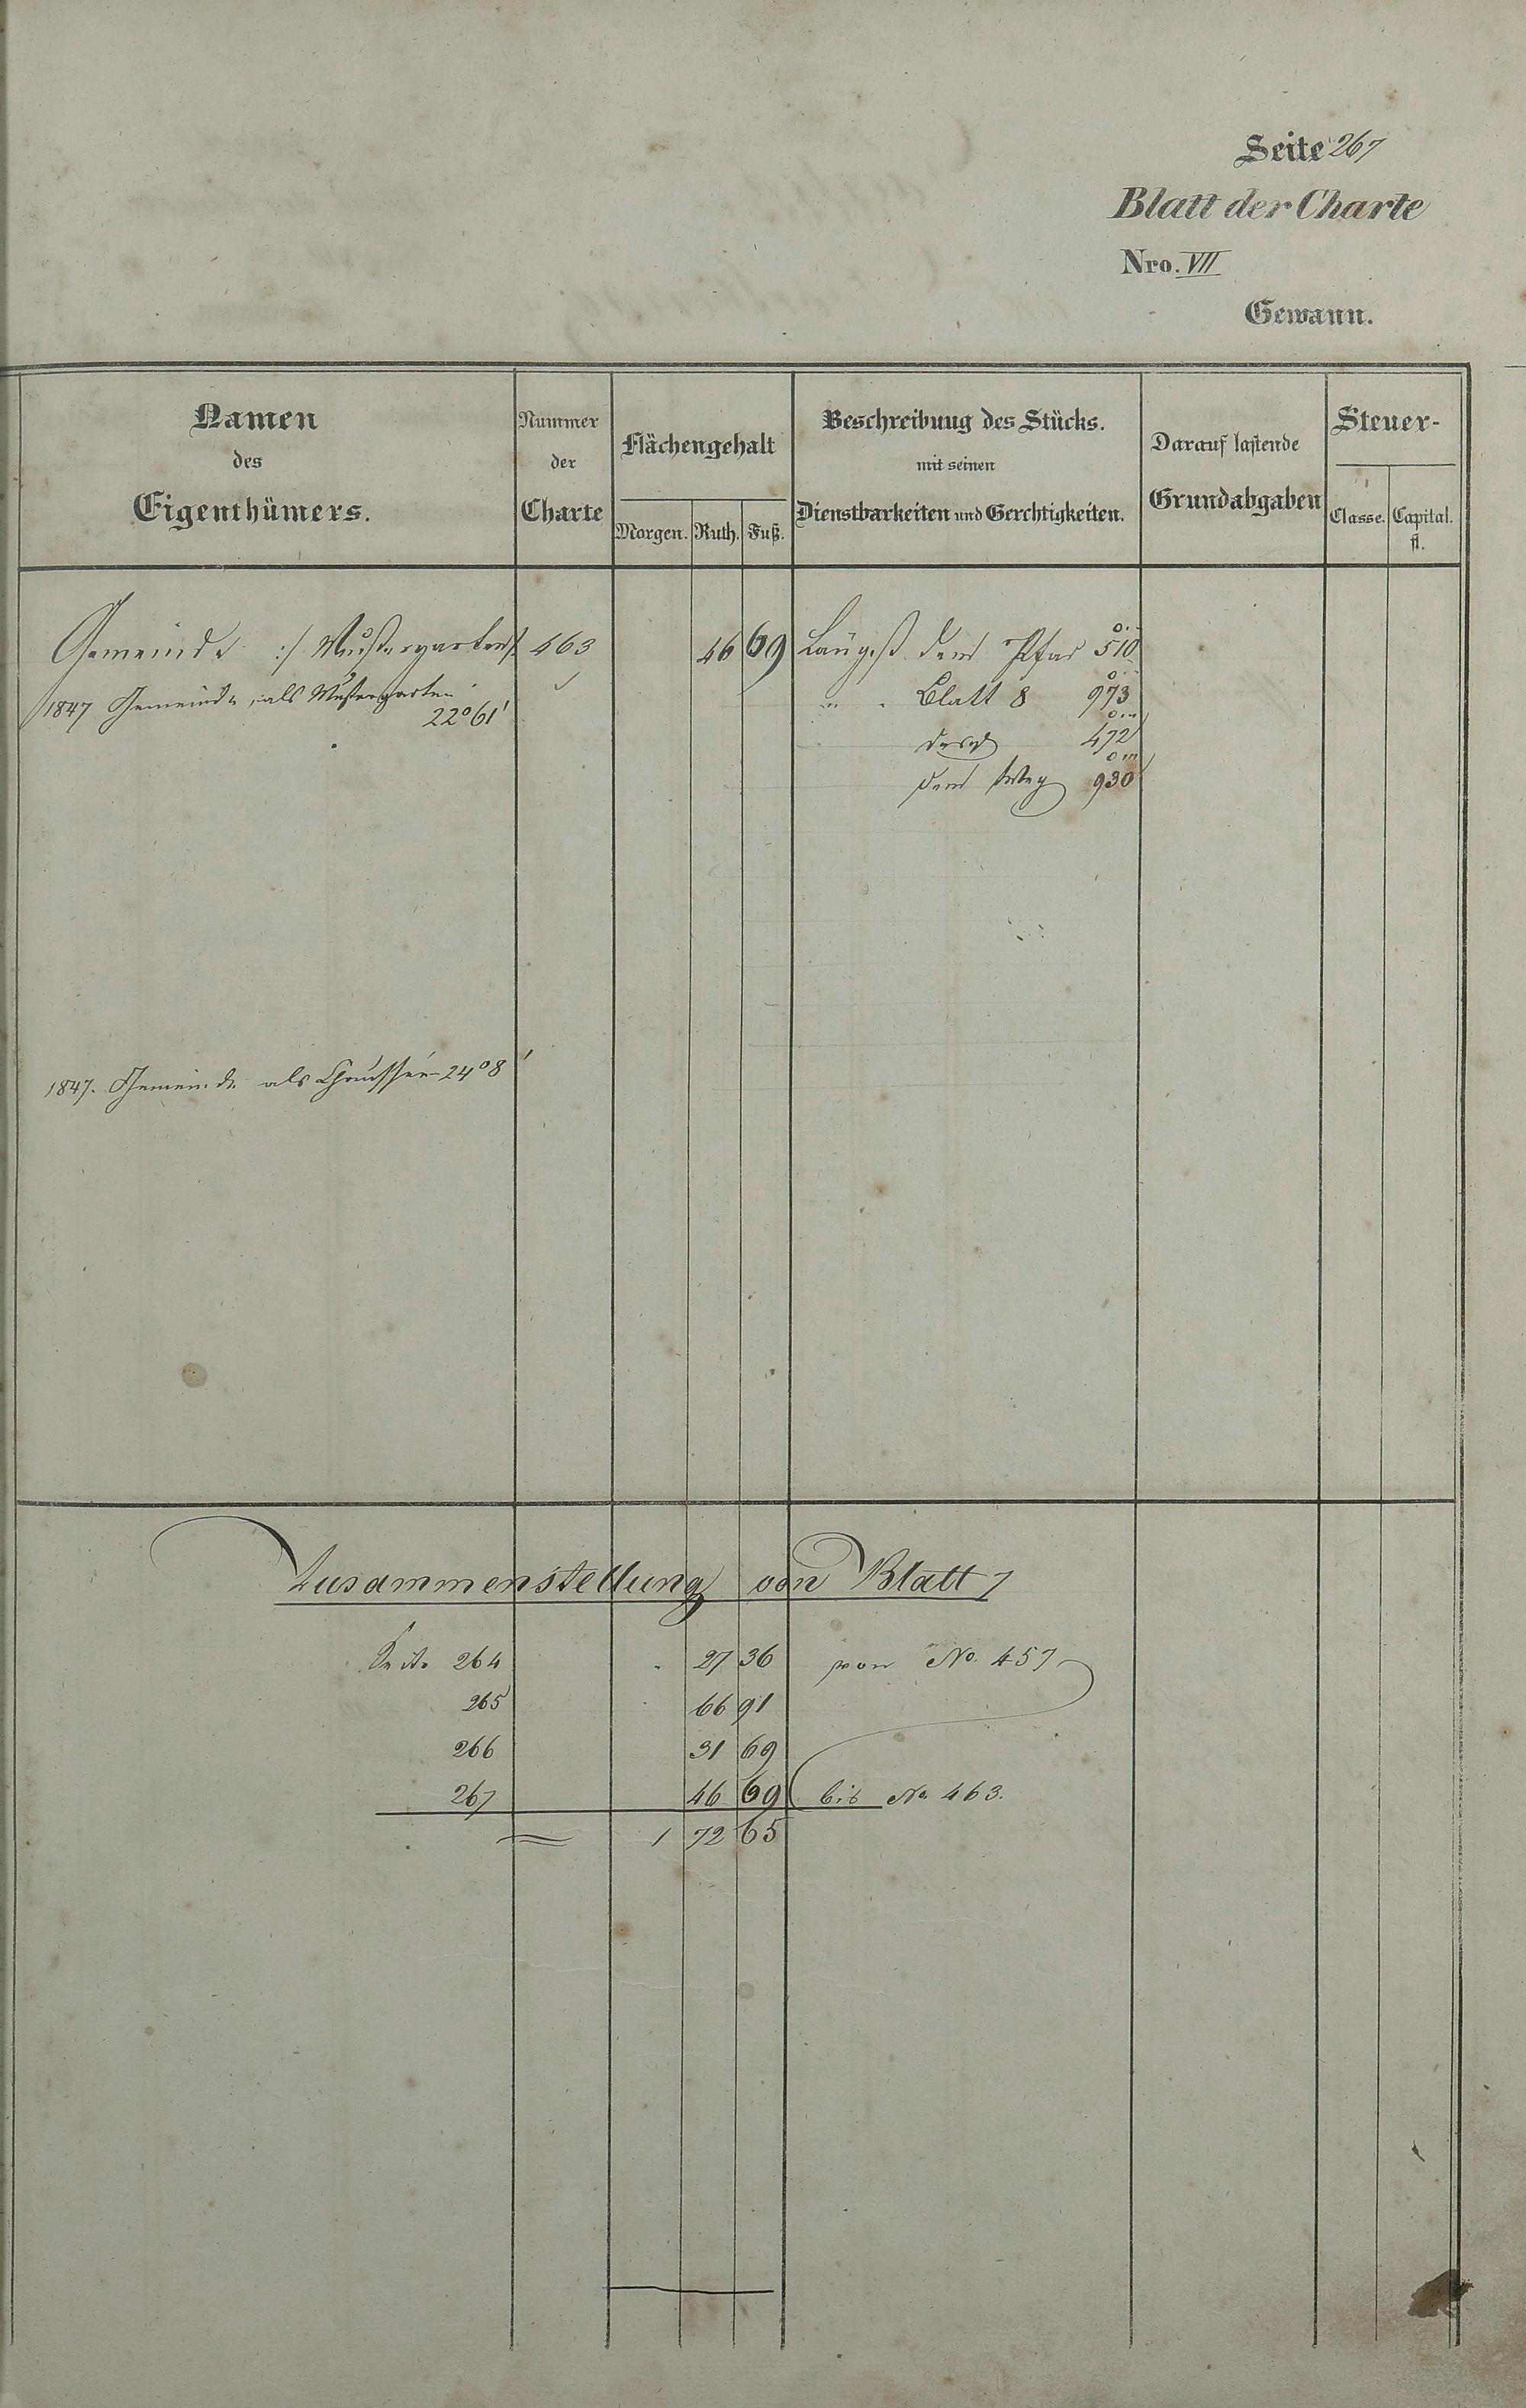 Seite 267
Blatt der Charte
Nro. VII
Gewann.
Namen des Eigenthümers.
Nummer der Charte
Flächengehalt
Morgen. Ruth. Fuß.
Beschreibung des Stücks.
mit seinen
Dienstbarkeiten und Gerchtigkeiten.
Darauf lastende
Grundabgaben
Steuer-
Classe. Capital.
fl.
Gemeinde :/ Mustergarten /: 463 46 69 Längst dem Pfad 510
1847 Gemeinde, als Mustergarten Blatt 8 973
22° 61'
472
dem Weg 930
1847. Gemeinde als Chaussée 24° 8'
Zusammenstellung von Blatt 7
Seite 264 27 36 von No. 457
265 66 91
266 31 69
267 46 69 bis No. 463.
1 72 65